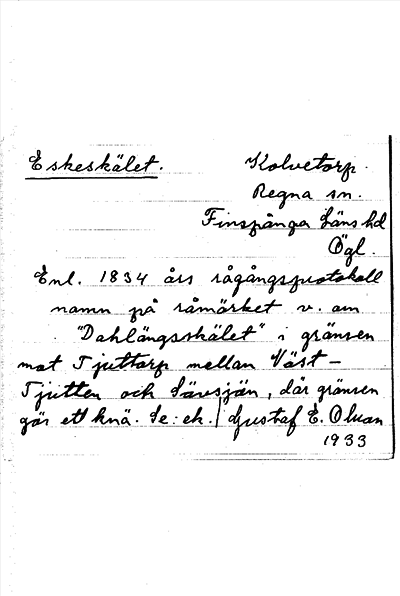 Eskeskälet. Kolvetorp.
Regna sn.
Finspånga Läns hd
Ögl.
Enl. 1834 års rågångsprotokoll
namn på råmärket v. om
"Dahlängsskälet" i gränsen
mot Tjuttorp mellan Väst-
Tjutten och Sävsjön, där gränsen
gör ett knä. Se: ek. / Gustaf E. Olsson
1933